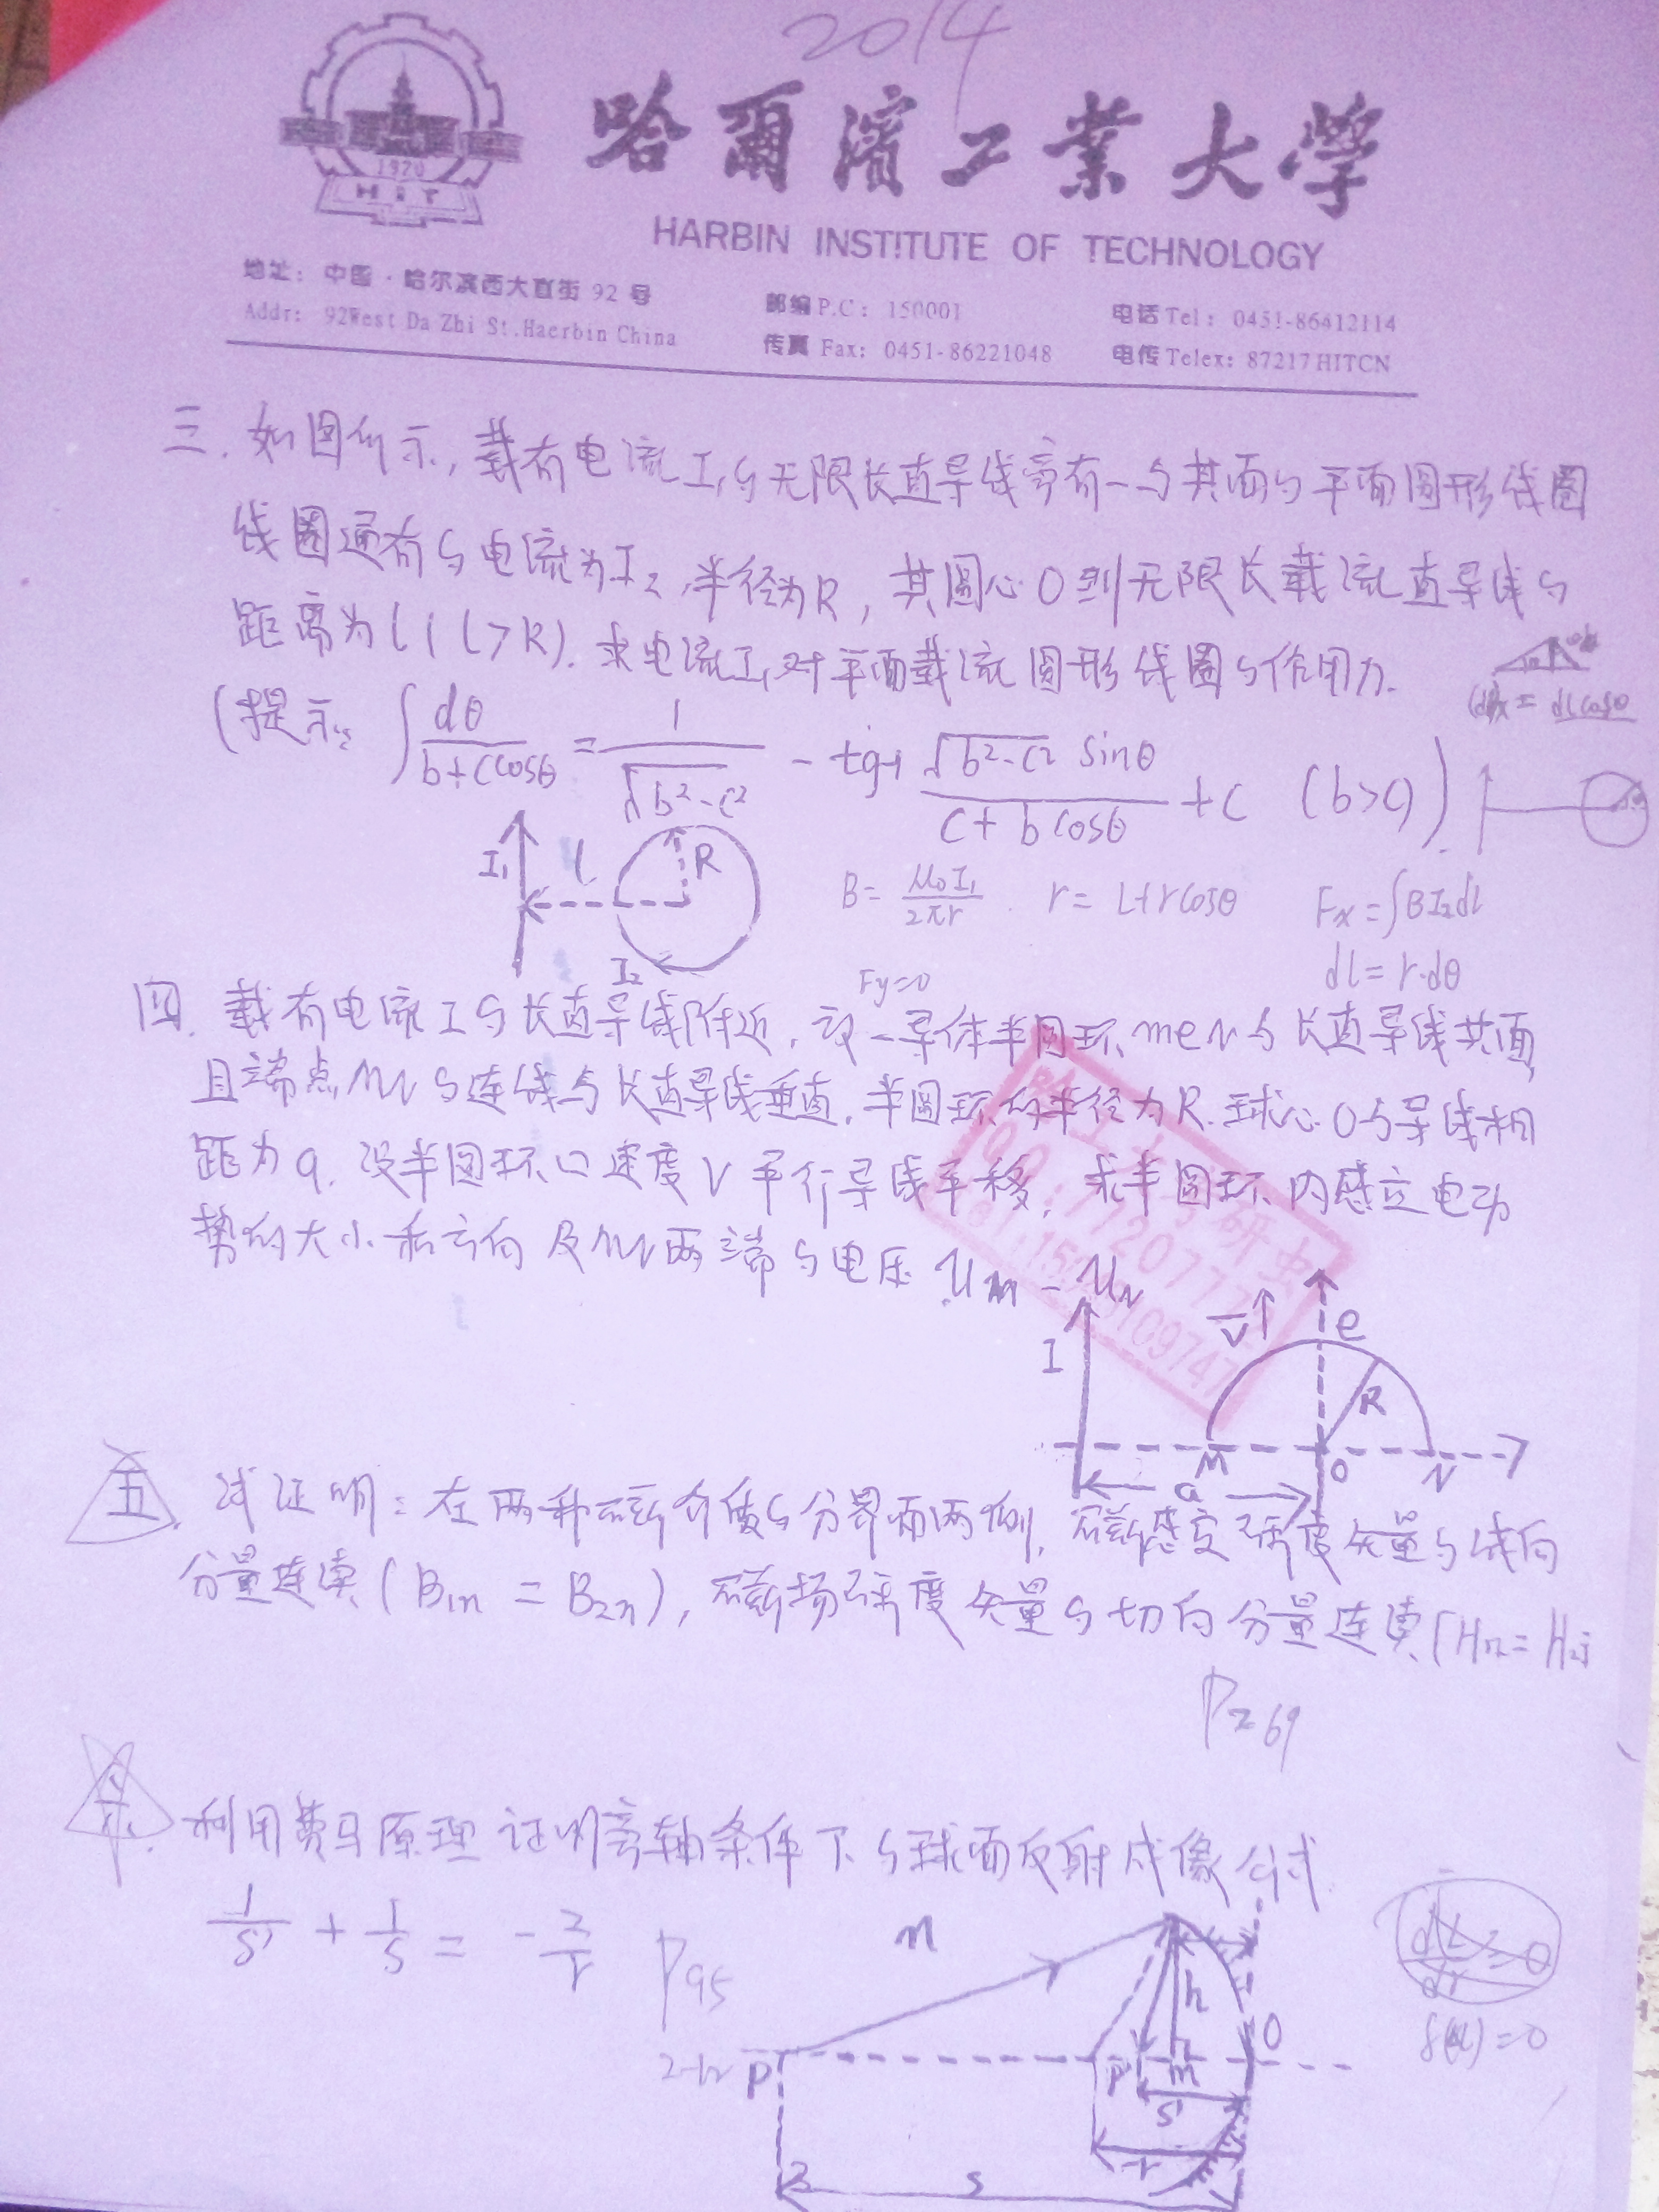 2014
哈爾濱工業大學
HARBIN INSTITUTE OF TECHNOLOGY
1920
HIT
地址：中国·哈尔滨西大直街 92 号
邮编 P.C：150001
电话 Tel：0451-86412114
Addr：92West Da Zhi St.Haerbin China
传真 Fax：0451-86221048
电传 Telex：87217HITCN
三. 如图所示，载有电流I₁的无限长直导线旁有一与共面的平面圆形线圈
线圈通有的电流为I₂，半径为R，其圆心O到无限长载流直导线的
距离为l（l>R）. 求电流I₁对平面载流圆形线圈的作用力.
(提示: ∫dθ/(b+ccosθ) = 1/√(b²-c²) - tg⁻¹ √(b²-c²) sinθ/(c+bcosθ) + C (b>c))
dx = dlcosθ
I₁ l R I₂
B=μ₀I₁/2πr r= L+rcosθ Fx=∫BI₂dl
dl=r·dθ
Fy=0
四. 载有电流I的长直导线附近，设一导体半圆环MeN与长直导线共面
且端点MN的连线与长直导线垂直. 半圆环的半径为R. 球心O与导线相
距为a. 设半圆环以速度V平行导线平移，求半圆环内感应电动
势的大小和方向及MN两端的电压 UM - UN
I V e R M O N a
五. 试证明：在两种磁介质的分界面两侧，磁感应强度矢量的法向
分量连续（B1n = B2n），磁场强度矢量的切向分量连续
P269
六. 利用费马原理证明旁轴条件下的球面反射成像公式
1/s' + 1/s = -2/r P95
n h O P P' m s' -r s